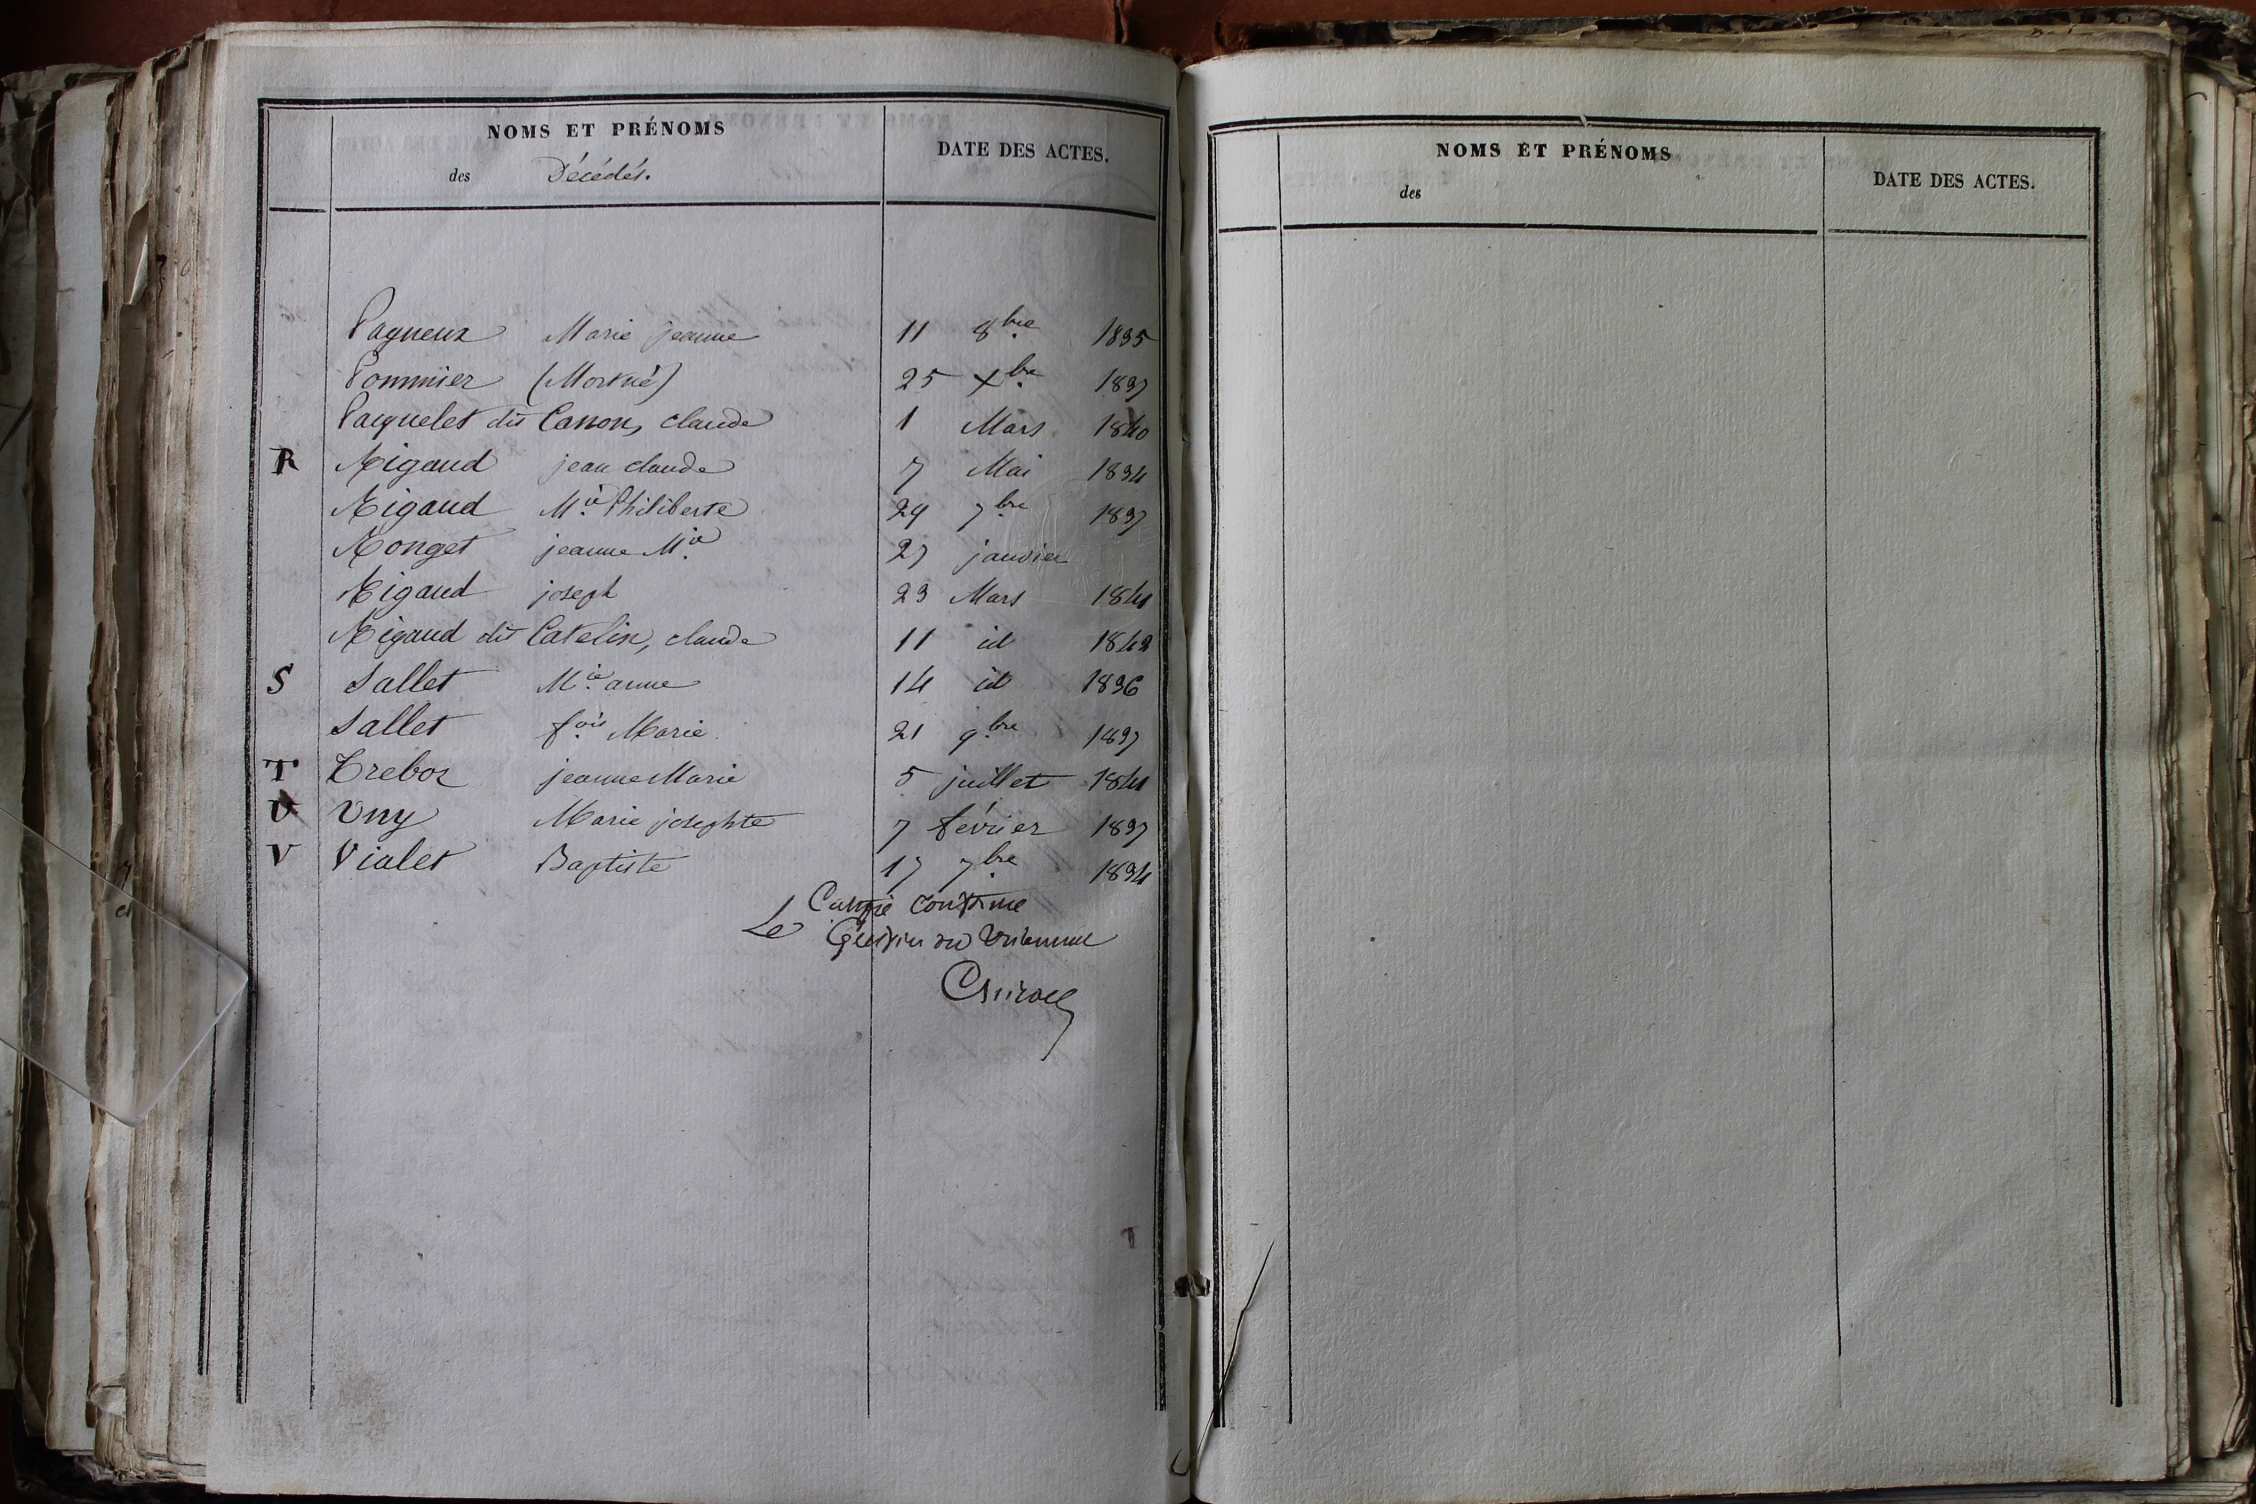 NOMS ET PRÉNOMS
des Décédés.
DATE DES ACTES.
Pagneux Marie jeanne 11 8bre 1835
Pommier (Mortné) 25 Xbre 1837
Pacquelet dit Canon, claude 1 Mars 1840
R Rigaud jean claude 7 Mai 1834
Rigaud Mie Philiberte 29 7bre 1837
Ronget jeanne Mie 27 janvier
Rigaud joseph 23 Mars 1841
Rigaud dit Catelin, claude 11 id 1842
S Sallet Mie anne 14 id 1836
Sallet fois Marie 21 9bre 1837
T Treboz jeanne Marie 5 juillet 1841
U Uny Marie josephte 7 février 1837
V Vialet Baptiste 17 7bre 1834
Certifié conforme
Le Greffier du Tribunal
NOMS ET PRÉNOMS
des
DATE DES ACTES.